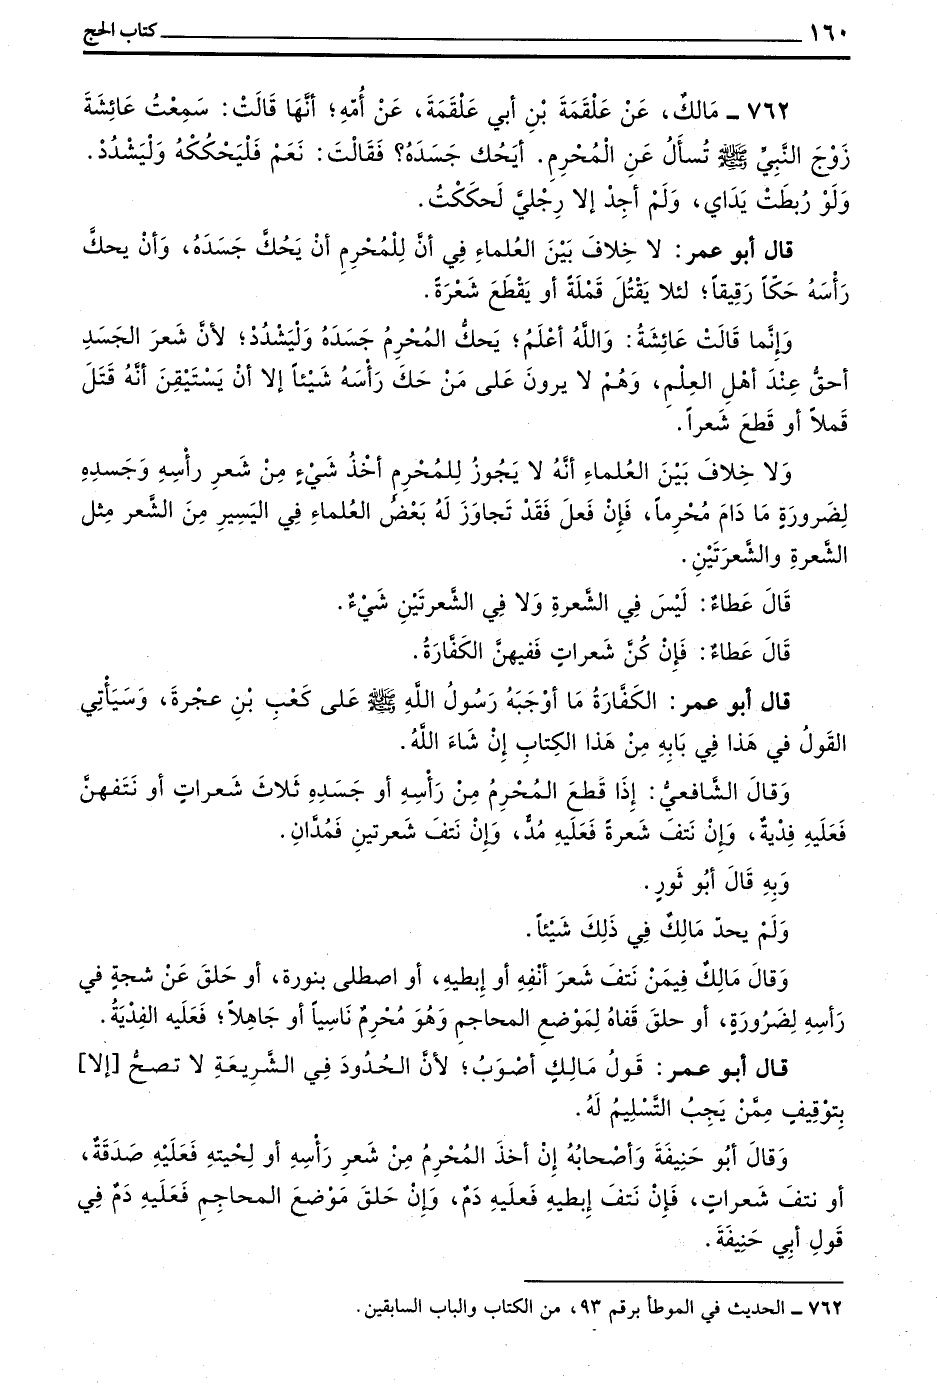 ١٦٠ كتاب الحج
٧٦٢ ـ مَالكٌ، عَنْ عَلْقَمَةَ بْنِ أبي عَلْقَمَةَ، عَنْ أُمّهِ؛ أنَّهَا قَالَتْ: سَمِعْتُ عَائِشَةَ
زَوْجَ النَّبِيِّ ﷺ تُسأَلُ عَنِ الْمُحْرِمِ. أيَحُك جَسَدَهُ؟ فَقَالَتَ: نَعَمْ فَلْيَحْكُكْهُ وَلْيَشْدُدْ.
وَلَوْ رُبطَتْ يَدَاي، وَلَمْ أجِدْ إلا رِجْليَّ لَحكَكْتُ.
قال أبو عمر: لا خِلافَ بَيْنَ العُلماءِ فِي أنَّ لِلْمُحْرِمِ أنْ يَحُكَّ جَسَدَهُ، وَأنْ يحكَّ
رَأْسَهُ حَكّاً رَقِيقاً؛ لئلا يَقْتُلَ قَمْلَةً أو يَقْطَعَ شَعْرَةً.
وَإنَّما قَالَتْ عَائِشَةُ: وَاللَّهُ أعْلَمُ؛ يَحكُّ المُحْرِمُ جَسَدَهُ وَلْيَشْدُدْ؛ لأنَّ شَعرَ الجَسَدِ
أحقُّ عِنْدَ أهْلِ العِلْمِ، وَهُمْ لا يرونَ عَلى مَنْ حَكَ رَأسَهُ شَيْئاً إلا أنْ يَسْتَيْقِنَ أنَّهُ قَتَلَ
قَملاً أو قَطعَ شَعراً.
وَلا خِلافَ بَيْنَ العُلماءِ أنَّهُ لا يَجُوزُ لِلمُحْرِمِ أخْذُ شَيْءٍ مِنْ شَعرِ رأْسِهِ وَجَسدِهِ
لِضَرورَةٍ مَا دَامَ مُحْرِماً، فَإنْ فَعلَ فَقَدْ تَجاوَزَ لَهُ بَعْضُ العُلماءِ فِي اليَسِيرِ مِنَ الشَّعر مِثل
الشَّعرةِ والشَّعرَتَيْنِ.
قَالَ عَطاءٌ: لَيْسَ فِي الشَّعرةِ وَلا فِي الشَّعرتَيْنِ شَيْءٌ.
قَالَ عَطاءٌ: فَإنْ كُنَّ شَعراتٍ فَفيهنَّ الكَفَّارَةُ.
قال أبو عمر: الكَفَّارَةُ مَا أوْجَبَهُ رَسُولُ اللَّهِ ﷺ عَلى كَعْبِ بْنِ عجْرةَ، وَسَيَأْتِي
القَولُ في هَذا فِي بَابِهِ مِنْ هَذا الكِتابِ إنْ شَاءَ اللَّهُ.
وَقالَ الشَّافعيُّ: إذَا قَطعَ المُحْرِمُ مِنْ رَأْسِهِ أو جَسَدِهِ ثَلاثَ شَعراتٍ أو نَتَفهنَّ
فَعَلَيهِ فِدْيةٌ، وَإنْ نَتفَ شَعرةً فَعَلَيهِ مُدٌّ، وَإنْ نَتفَ شَعرتينِ فَمُدَّانِ.
وَبِهِ قَالَ أبُو ثَورٍ.
وَلَمْ يحدّ مَالِكٌ فِي ذَلِكَ شَيْئاً.
وَقالَ مَالِكٌ فِيمَنْ نَتفَ شَعرَ أنْفِهِ أو إبطيهِ، أو اصطلى بنورة، أو حَلقَ عَنْ شجةٍ في
رَأسِهِ لِضَرُورَةٍ، أو حلقَ قَفاهُ لِمَوْضعِ المحاجمِ وَهُوَ مُحْرِمٌ نَاسِياً أو جَاهِلاً؛ فَعَلَيه الفِدْيَةُ.
قال أبو عمر: قَولُ مَالِكٍ أصْوَبُ؛ لأنَّ الحُدُودَ فِي الشَّرِيعَةِ لا تصحُّ [إلا]
بِتوْقِيفٍ مِمَّنْ يَجِبُ التَّسْلِيمُ لَهُ.
وَقَالَ أبُو حَنِيفَةَ وَأصْحابُهُ إنْ أخذَ المُحْرِمُ مِنْ شَعرِ رَأْسِهِ أو لِحْيتهِ فَعَلَيْهِ صَدَقَةٌ،
أو نتفَ شَعراتٍ، فَإنْ نَتفَ إبطيهِ فَعلَيهِ دَمٌ، وَإنْ حَلقَ مَوْضعَ المحاجِمِ فَعَلَيهِ دَمٌ فِي
قَولِ أبِي حَنِيفَةَ.
٧٦٢ ـ الحديث في الموطأ برقم ٩٣، من الكتاب والباب السابقين.